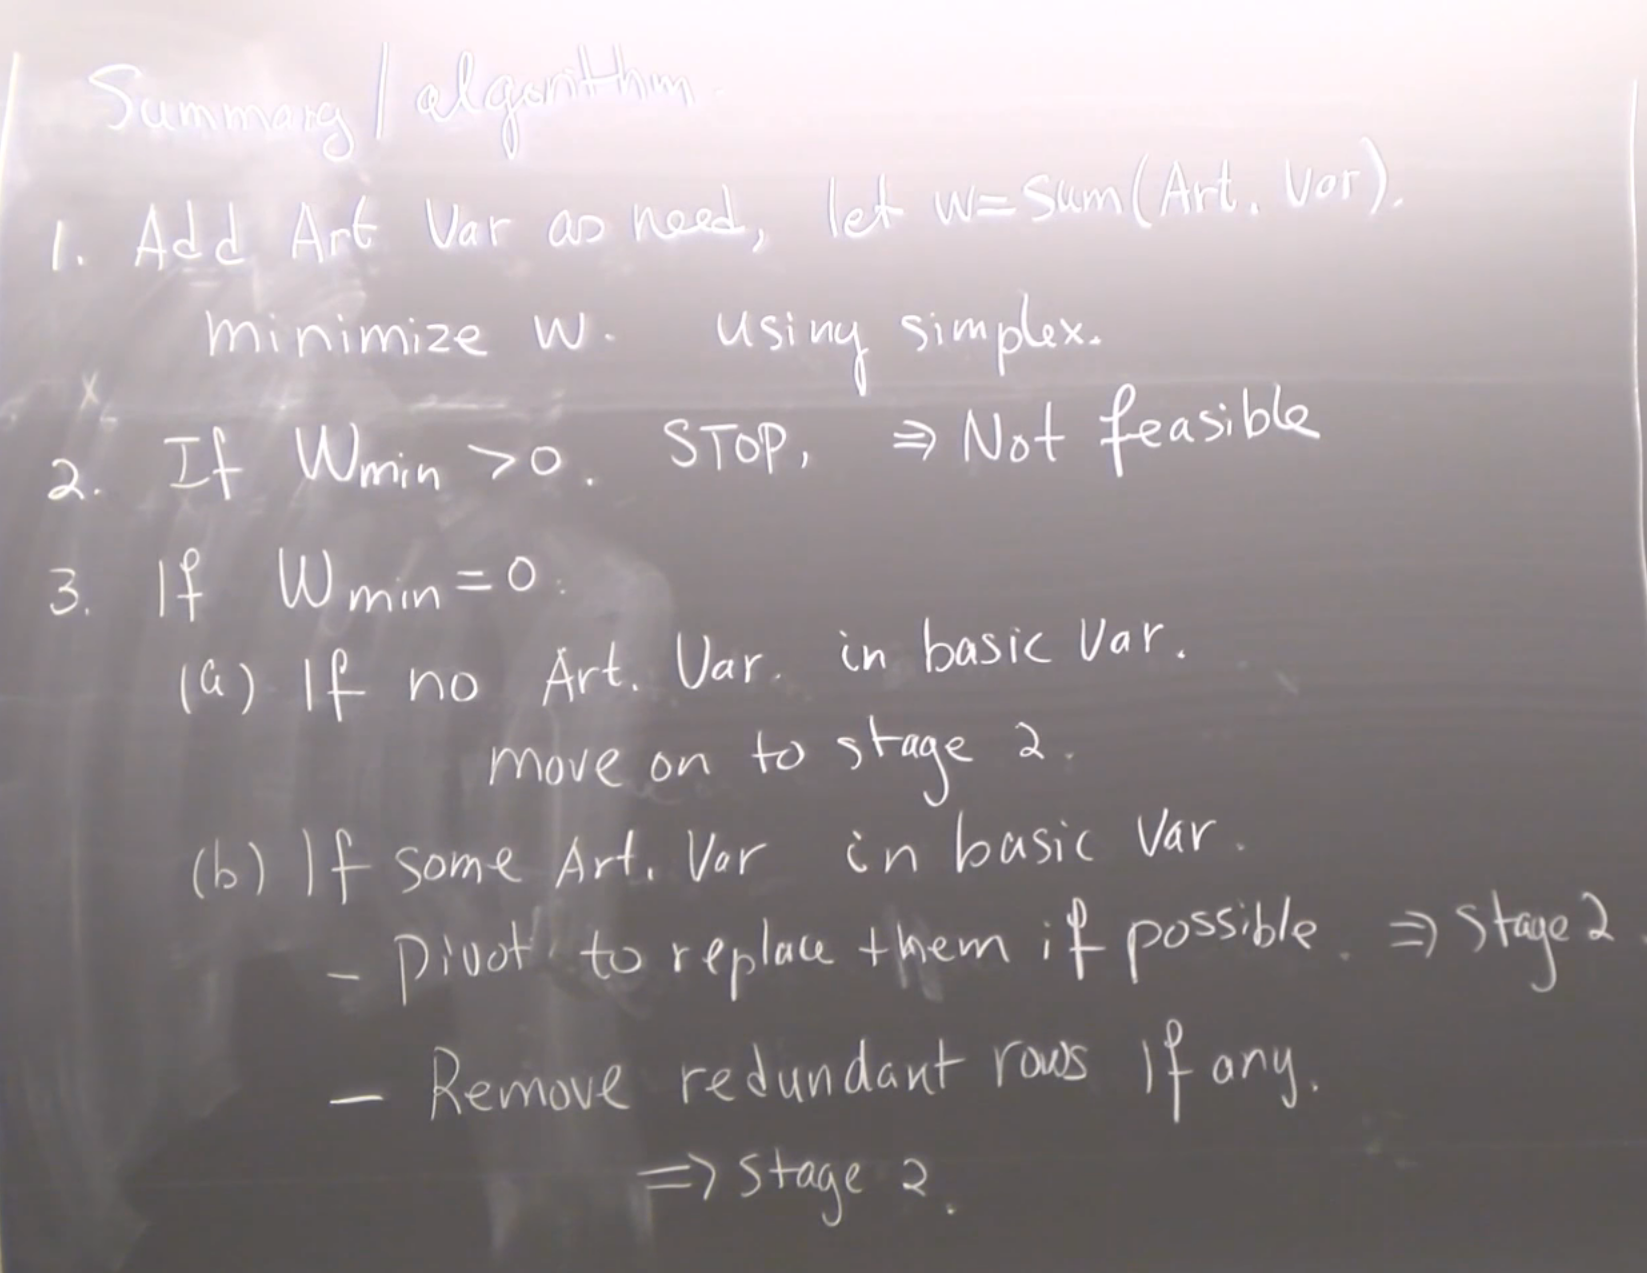 Summary/algorithm
1. Add Art Var as need, let w=sum(Art. Var).
minimize w. using simplex.
2. If Wmin >0. STOP, ⇒ Not feasible
3. If Wmin=0.
(a) If no Art. Var. in basic Var.
move on to stage 2.
(b) If some Art. Var in basic Var.
- Pivot to replace them if possible. ⇒ Stage 2
- Remove redundant rows if any.
⇒ stage 2.